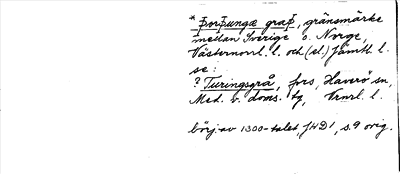 * Þorþungæ graþ, gränsmärke
mellan Sverige o. Norge,
Västernorrl. l. och (el.) Jämtl. l.
se:
? Turingsgrå, fors, Haverö sn,
Med. v. doms. tg, Vrnrl. l.
börj. av 1300-talet, JHD 1, s. 9 orig.